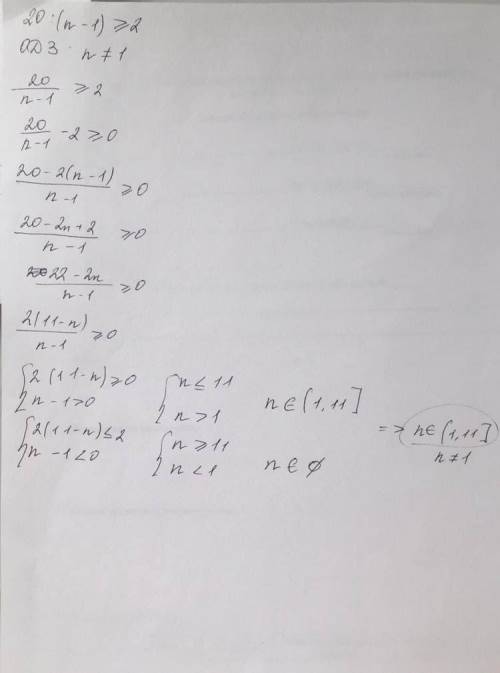 20 : (n - 1) ⩾ 2
ОДЗ : n ≠ 1
20/(n - 1) ⩾ 2
20/(n - 1) - 2 ⩾ 0
(20 - 2(n - 1))/(n - 1) ⩾ 0
(20 - 2n + 2)/(n - 1) ⩾ 0
(22 - 2n)/(n - 1) ⩾ 0
2(11 - n)/(n - 1) ⩾ 0
{2(11 - n) ⩾ 0 {n ≤ 11
n - 1 > 0 n > 1 n ∈ (1, 11]
{2(11 - n) ≤ 2 {n ⩾ 11
n - 1 < 0 n < 1 n ∈ ∅
=> n ∈ (1, 11]
n ≠ 1